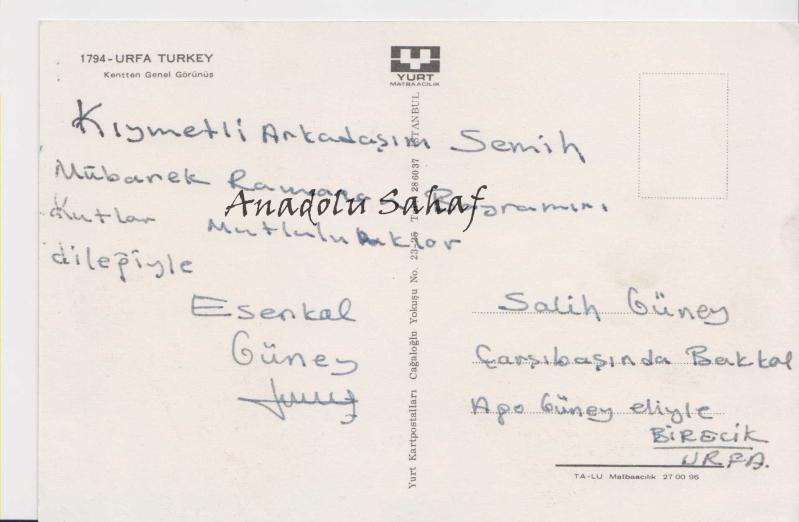 1794-URFA TURKEY
Kentten Genel Görünüş
YURT
MATBAACILIK
Kıymetli Arkadaşım Semih
Mübarek Ramazan Bayramını
Kutlar Mutluluklar
dileğiyle
Esenkal
Güney
Anadolu Sahaf
Yurt Kartpostalları Cağaloğlu Yokuşu No. 23-25 286037 İSTANBUL
Salih Güney
Çarşıbaşında Bakkal
Apo Güney eliyle
BİRECİK
URFA.
TA-LU Matbaacılık 27 00 96